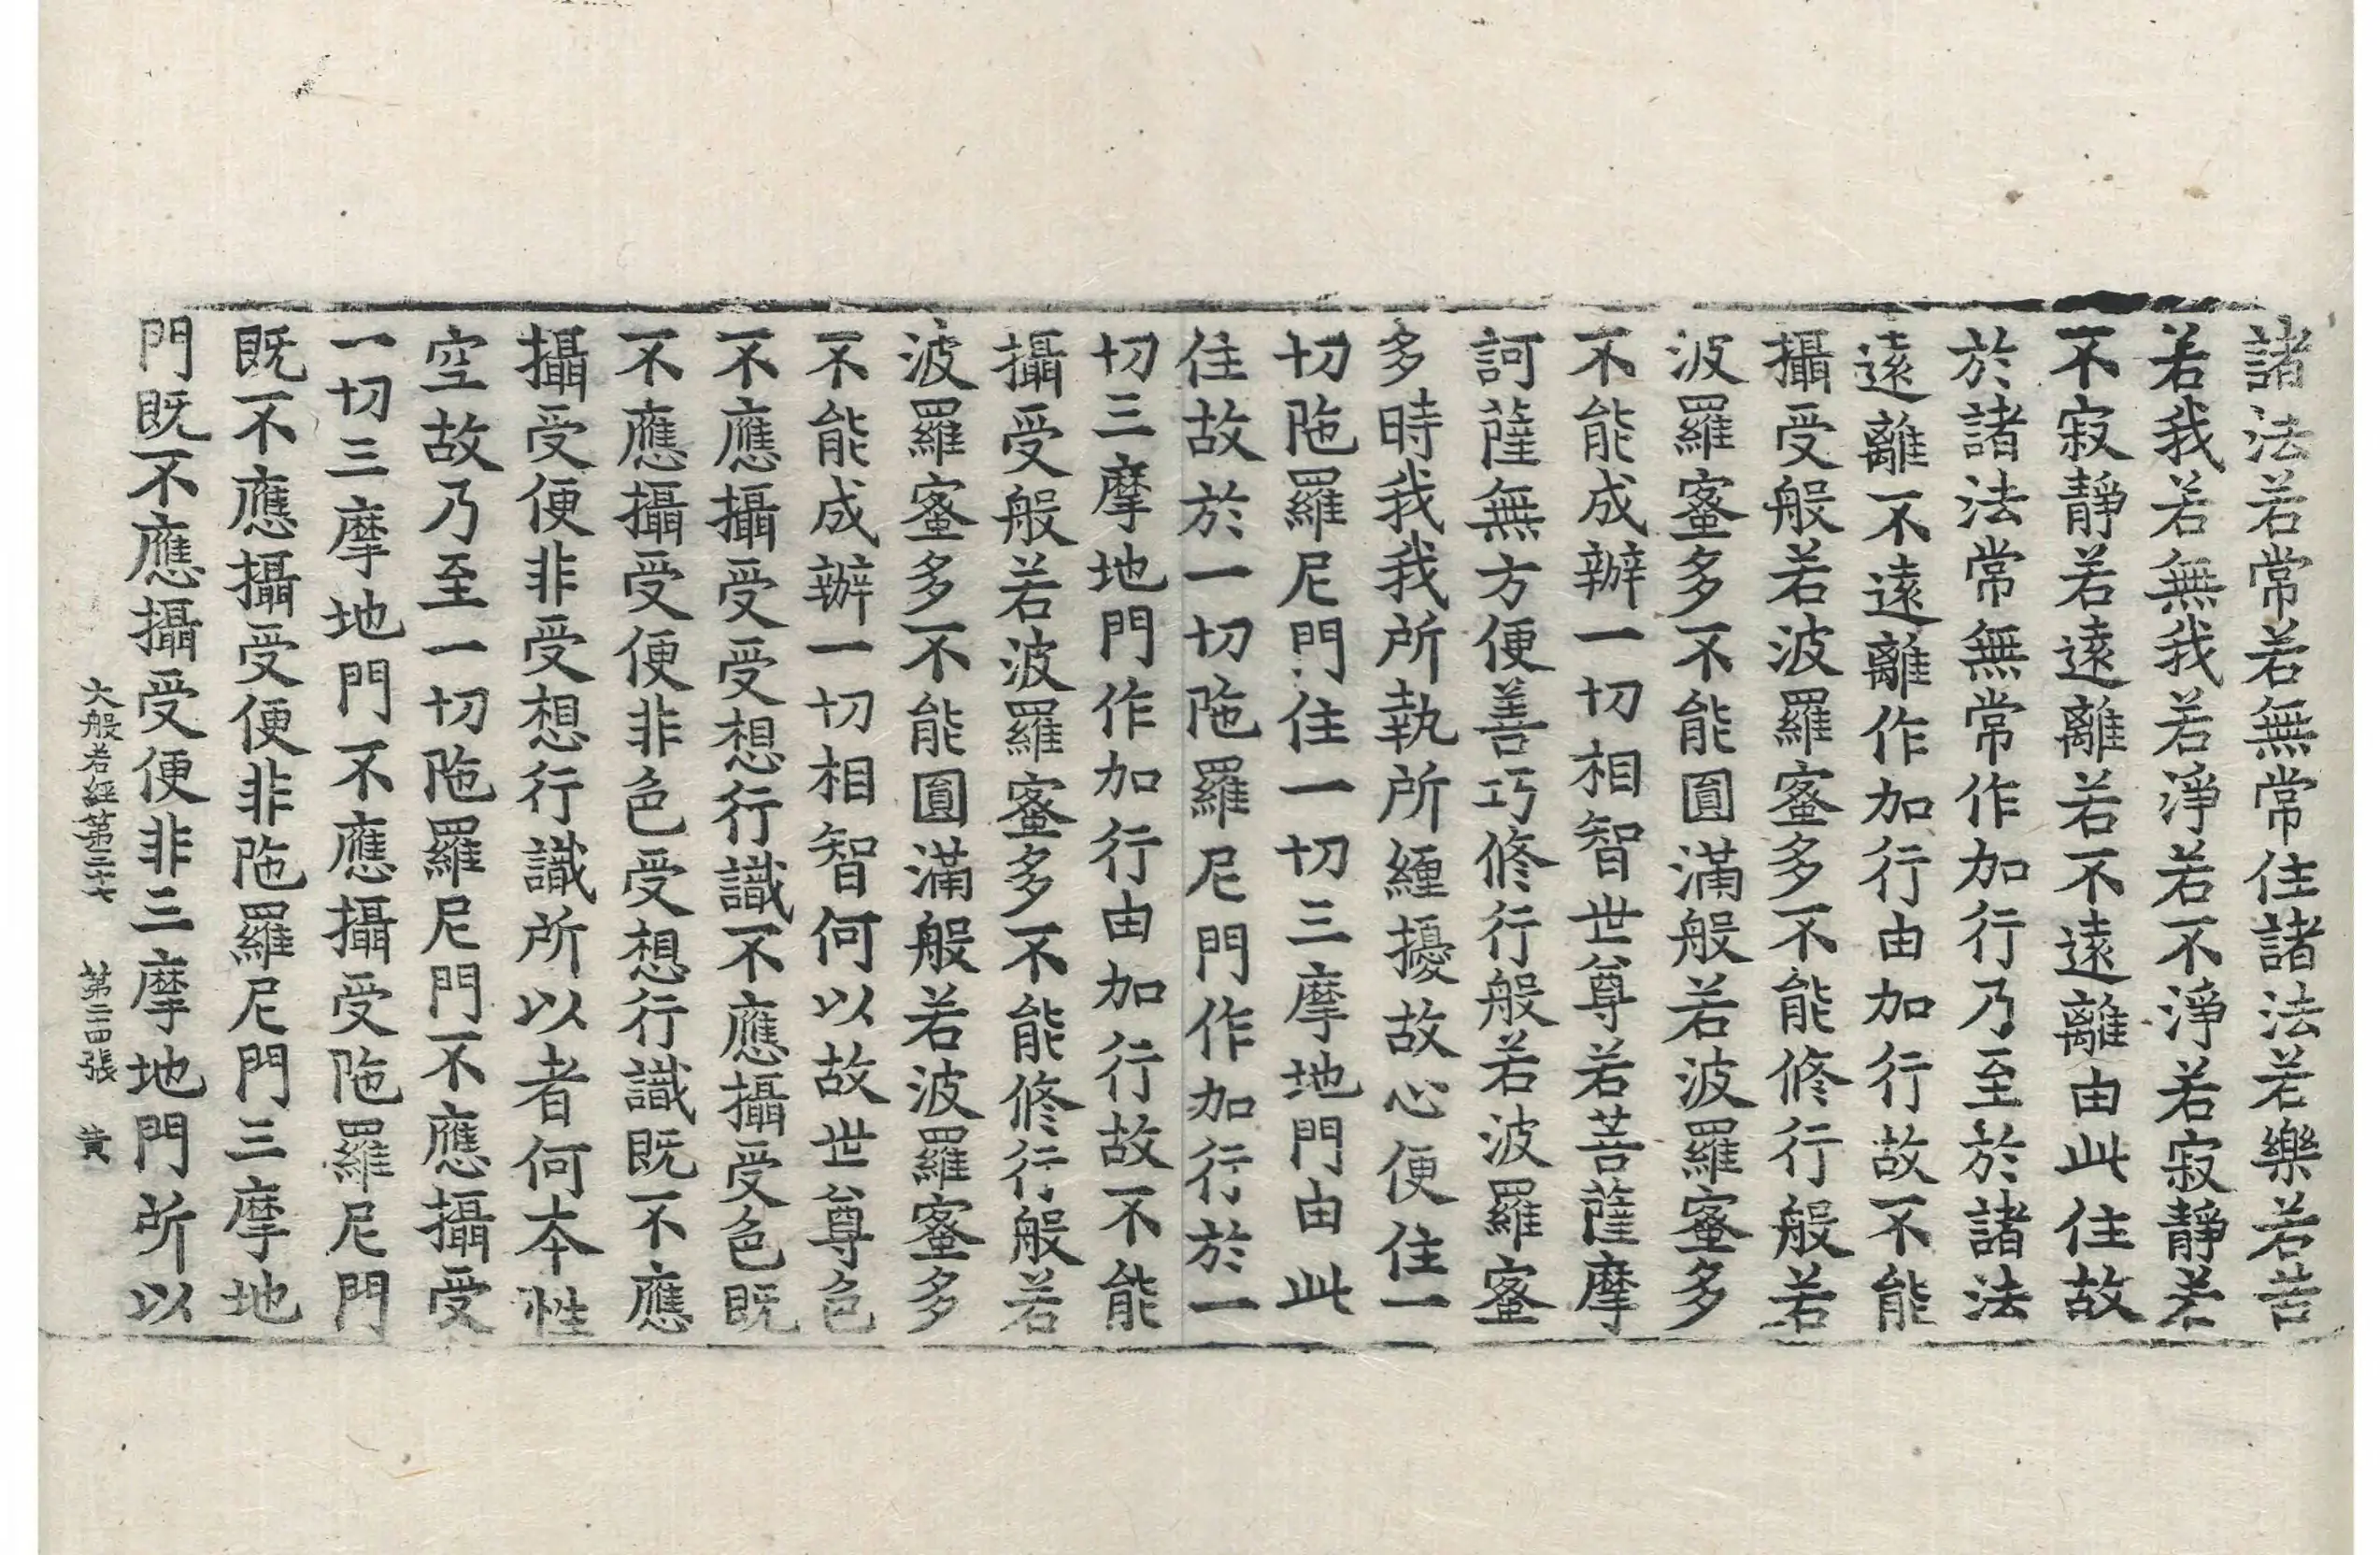 諸法若常若無常住諸法若樂若苦
若我若無我若淨若不淨若寂靜若
不寂靜若遠離若不遠離由此住故
於諸法常無常作加行乃至於諸法
遠離不遠離作加行由加行故不能
攝受般若波羅蜜多不能修行般若
波羅蜜多不能圓滿般若波羅蜜多
不能成辦一切相智世尊若菩薩摩
訶薩無方便善巧修行般若波羅蜜
多時我我所執所纏擾故心便住一
切陁羅尼門住一切三摩地門由此
住故於一切陁羅尼門作加行於一
切三摩地門作加行由加行故不能
攝受般若波羅蜜多不能修行般若
波羅蜜多不能圓滿般若波羅蜜多
不能成辦一切相智何以故世尊色
不應攝受受想行識不應攝受色既
不應攝受便非色受想行識既不應
攝受便非受想行識所以者何本性
空故乃至一切陁羅尼門不應攝受
一切三摩地門不應攝受陁羅尼門
既不應攝受便非陁羅尼門三摩地
門既不應攝受便非三摩地門所以
大般若經第三十七 第二十四張 黄